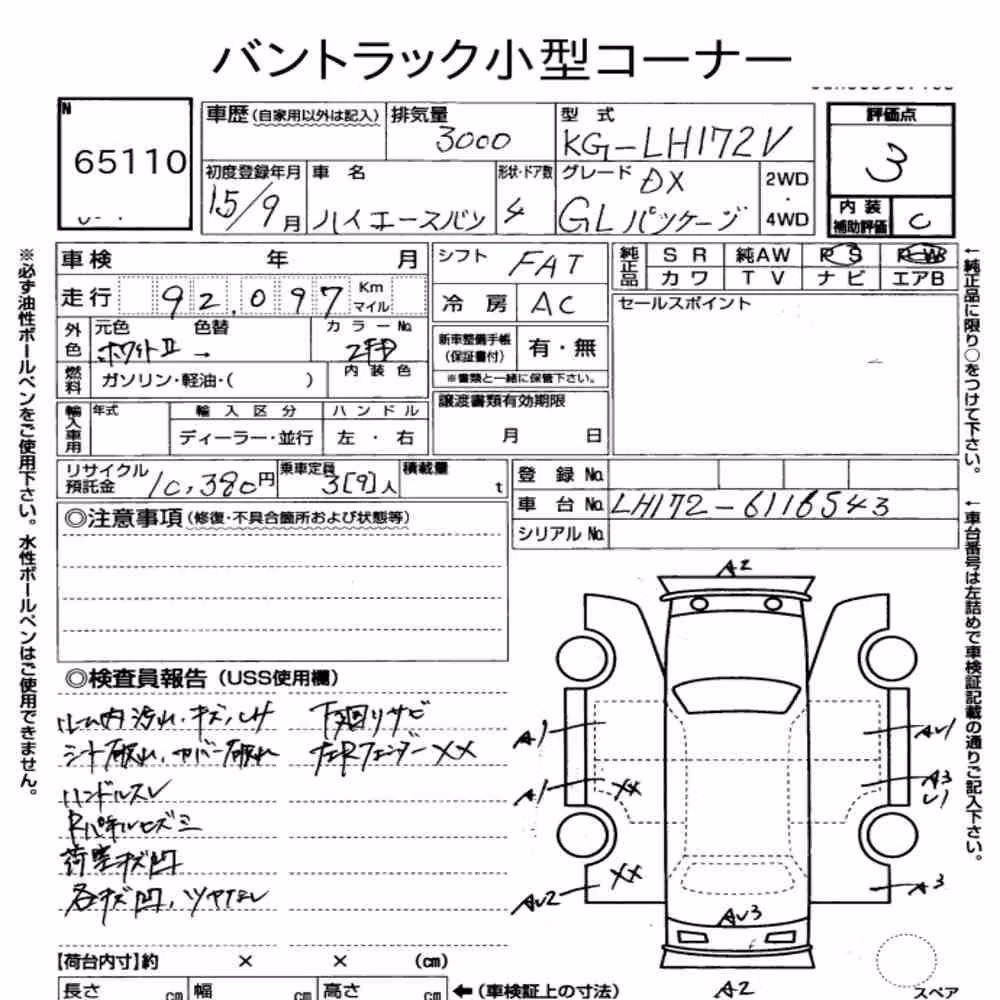 バントラック小型コーナー
N
65110
車歴(自家用以外は記入)
排気量
3000
型式
KG-LH172V
評価点
3
初度登録年月
15/9月
車名
ハイエースバン
形状・ドア数
4
グレード
DX
GLパッケージ
2WD
・
4WD
内装
補助評価
C
車検 年 月
シフト FAT
純正品
SR 純AW PS PW
カワ TV ナビ エアB
走行 92,097 Km マイル
冷房 AC
セールスポイント
外色
元色 色替
ホワイトⅡ →
カラーNo.
新車整備手帳
(保証書付)
有・無
※書類と一緒に保管下さい。
燃料
ガソリン・軽油・( )
内装色
輸入車用
年式
輸入区分
ハンドル
ディーラー・並行
左・右
譲渡書類有効期限
月 日
リサイクル
預託金
10,380円
乗車定員
3[9]人
積載量
t
登録No.
車台No. LH172-6116543
シリアルNo.
◎注意事項(修復・不具合箇所および状態等)
◎検査員報告(USS使用欄)
ルーム内汚れ、キズ、LH
下廻りサビ
シート破れ、カバー破れ
左RフェンダーXX
ハンドルスレ
荷室キズ凹
各キズ凹、ツヤなし
【荷台内寸】約 × × (cm)
長さ cm 幅 cm 高さ cm
←(車検証上の寸法)
A2
A1
A1
XX
XX
AU2
AU3
AU1
A3
U1
A3
A2
スペア
※必ず油性ボールペンをご使用下さい。水性ボールペンはご使用できません。
←純正品に限り○をつけて下さい。
←車台番号は左詰めで車検証記載の通りご記入下さい。